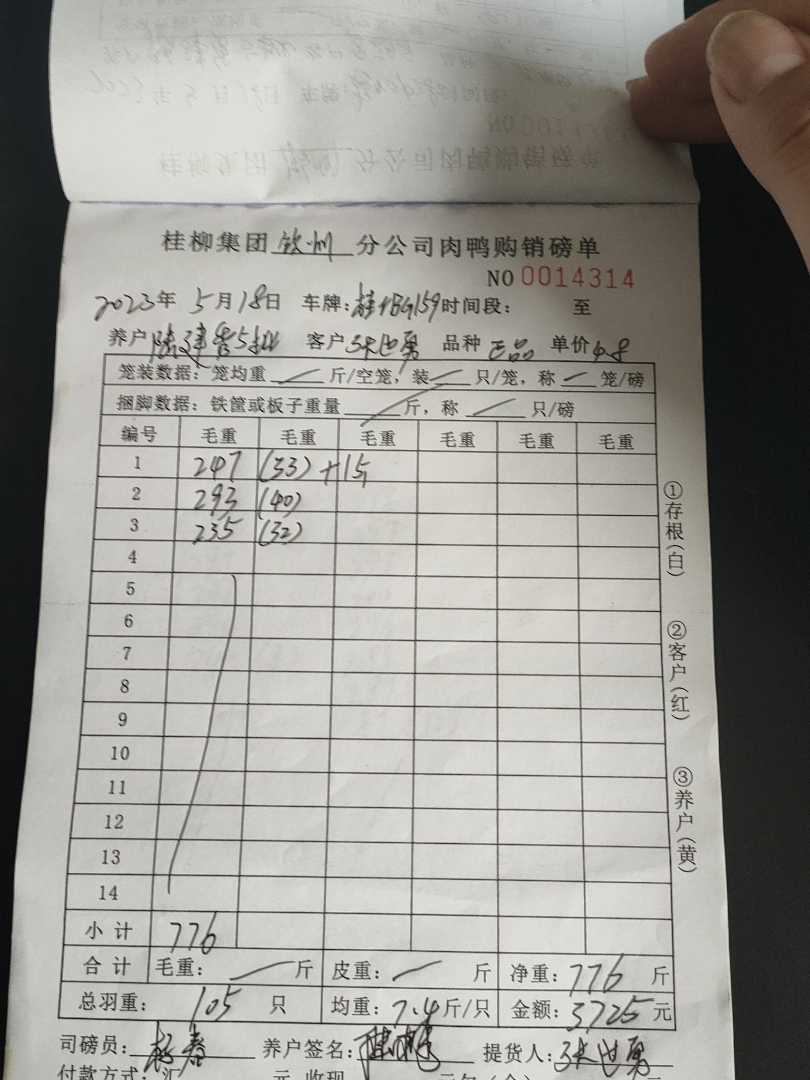 桂柳集团钦州分公司肉鸭购销磅单
NO 0014314
2023年 5月18日 车牌:桂 G159 时间段: 至
养户 陆建 5批 客户 张世勇 品种 正品 单价 4.8
笼装数据: 笼均重 斤/空笼, 装 只/笼, 称 笼/磅
捆脚数据: 铁筐或板子重量 斤, 称 只/磅
编号 毛重 毛重 毛重 毛重 毛重 毛重
1 247 (33) +15
2 293 (40)
3 235 (32)
4
5
6
7
8
9
10
11
12
13
14
小计 776
合计 毛重: 斤 皮重: 斤 净重: 776 斤
总羽重: 105 只 均重: 7.4 斤/只 金额: 3725 元
司磅员: 杨春 养户签名: 陆 提货人: 张世勇
付款方式: 汇 元 收现 元欠(余)
①存根(白)
②客户(红)
③养户(黄)